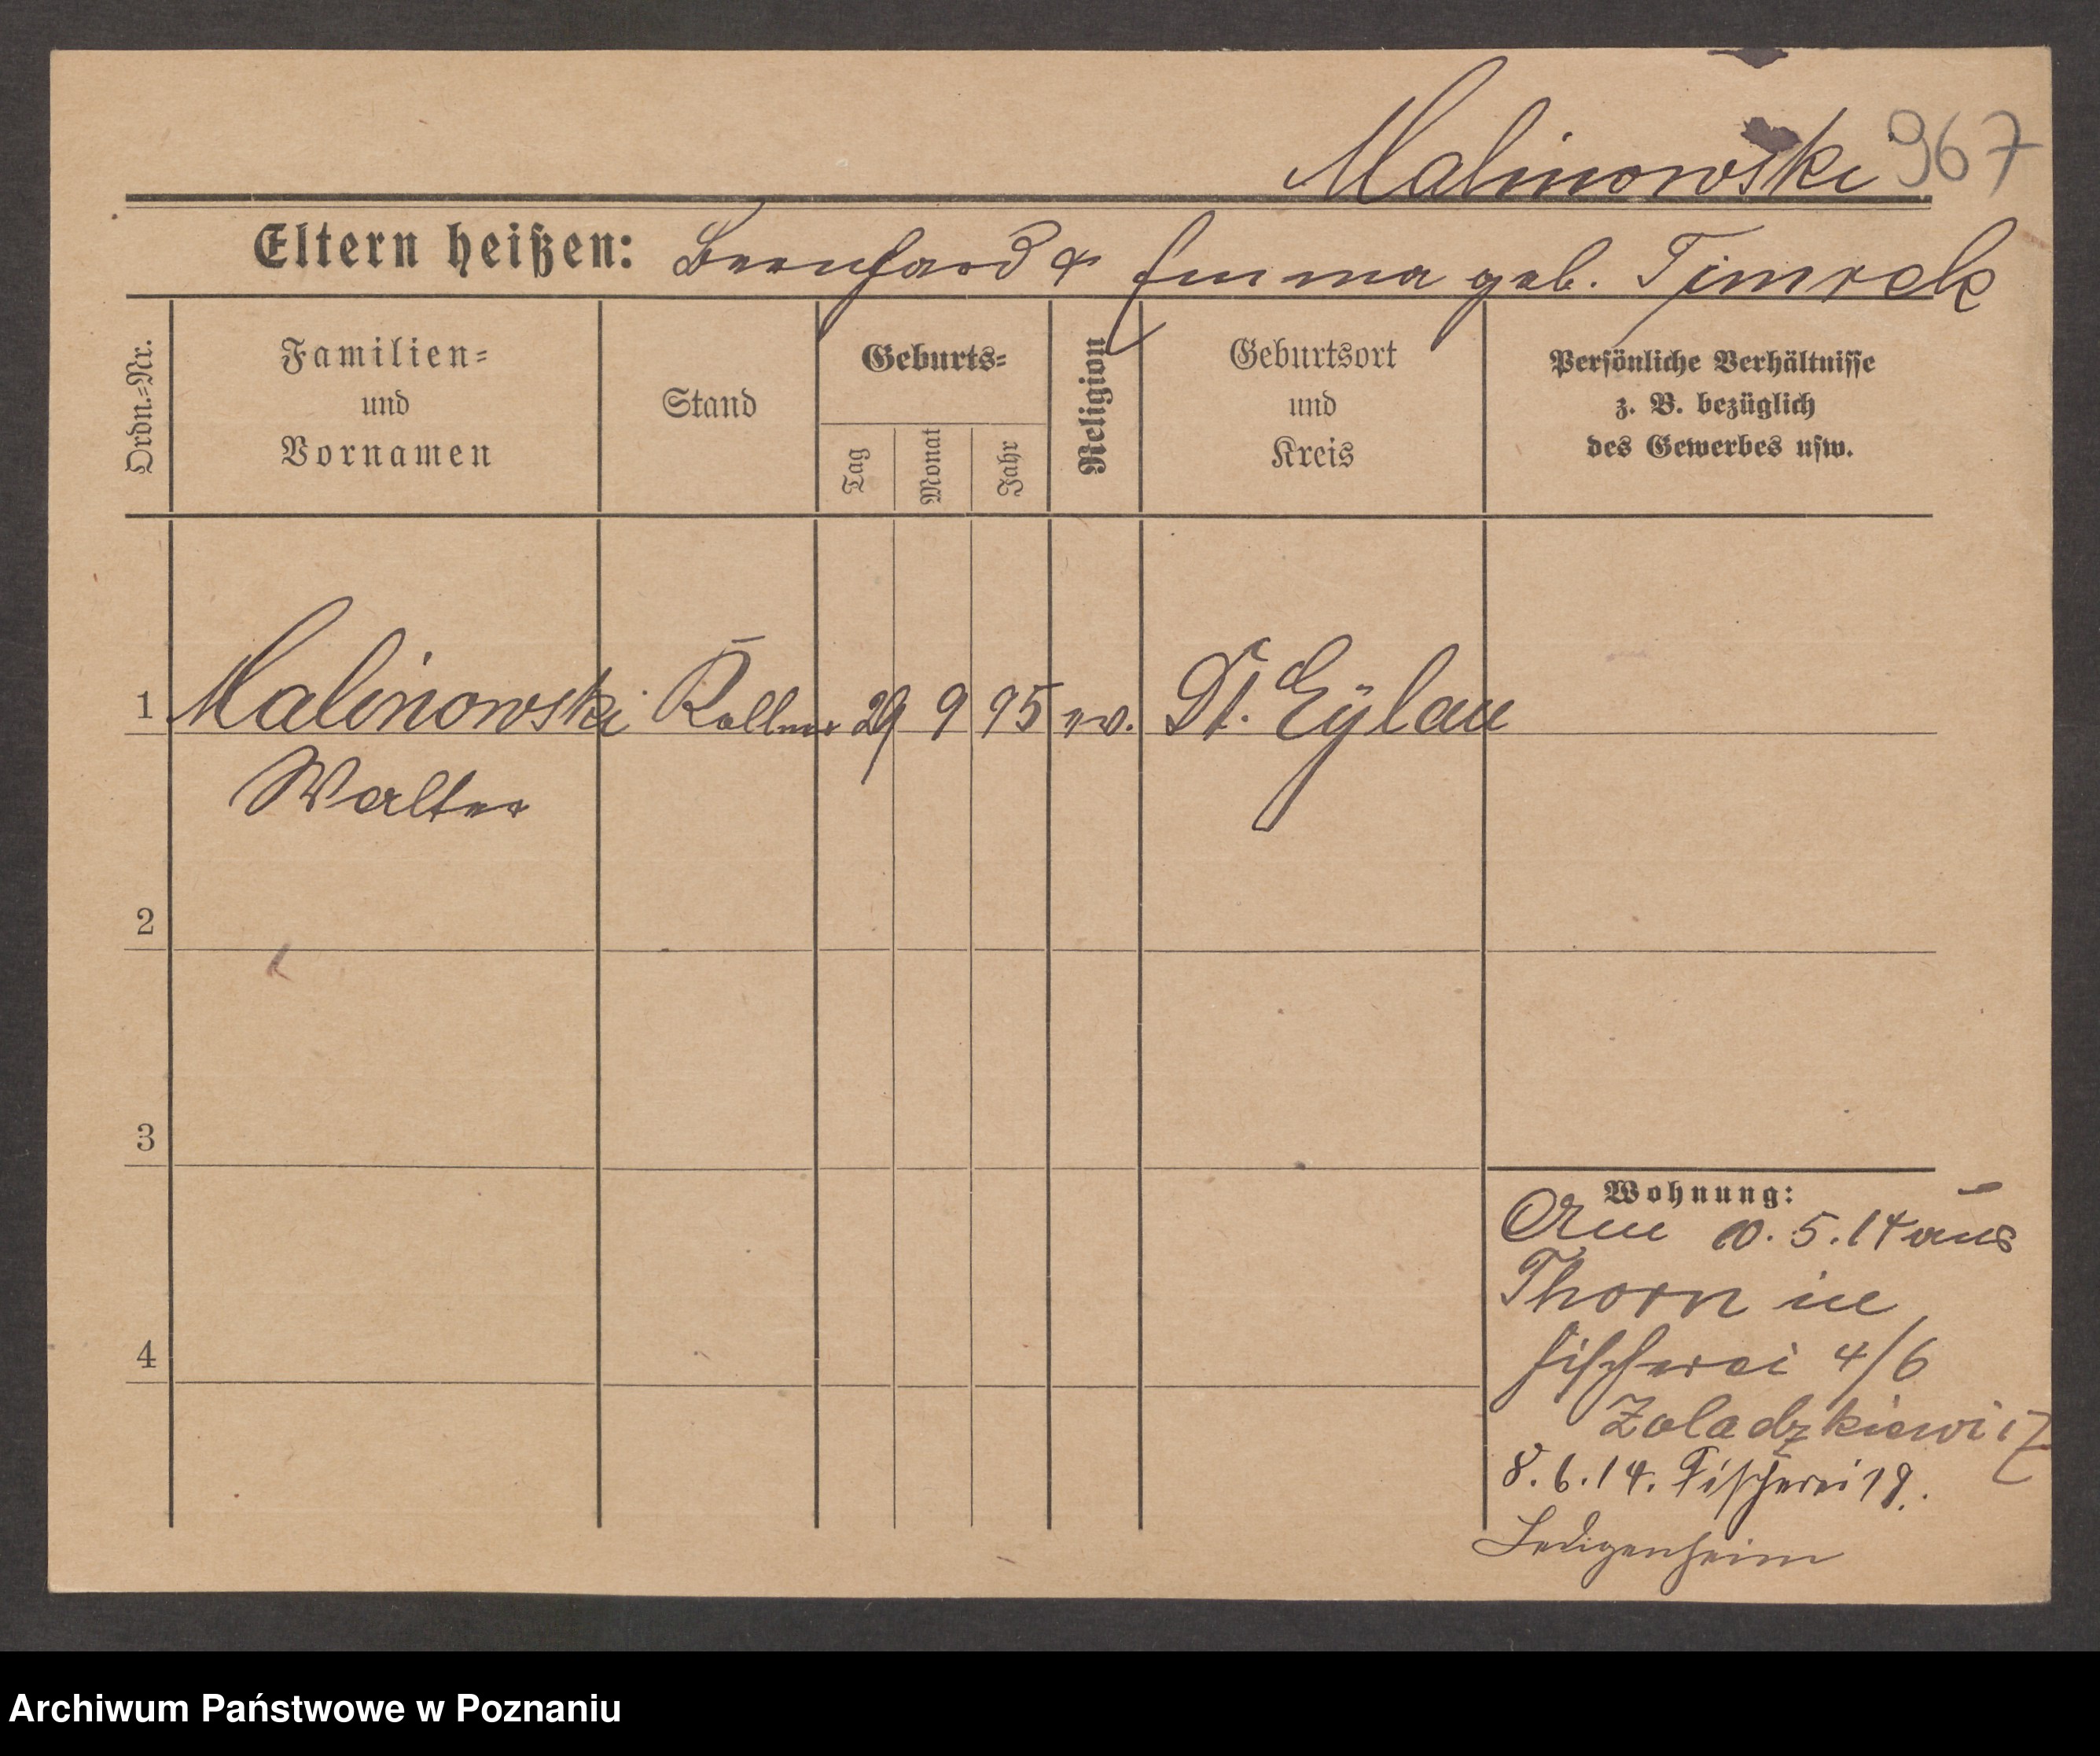 Malinowski 967
Eltern heißen: Bernhard & Emma geb. Timreck
Ordn.=Nr.
Familien=
und
Vornamen
Stand
Geburts=
Tag
Monat
Jahr
Religion
Geburtsort
und
Kreis
Persönliche Verhältnisse
z. B. bezüglich
des Gewerbes usw.
1 Malinowski Kellner 29 9 95 ev. Dt. Eylau
Walter
2
3
4
Wohnung:
Am 10. 5. 14 aus
Thorn in
Fischerei 4/6
Zoladzkiewicz
8. 6. 14. Fischerei 19.
Ledigenheim
Archiwum Państwowe w Poznaniu